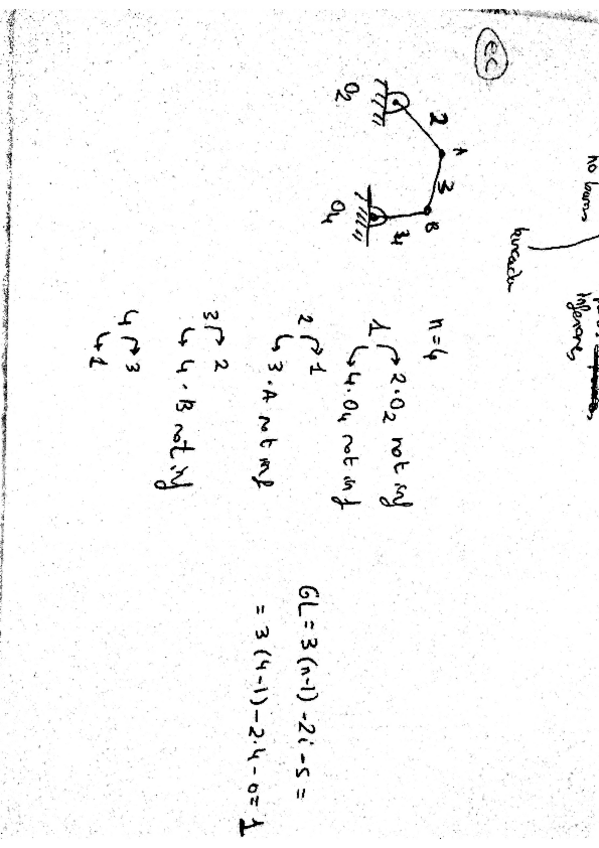 no barras
inferiores
bancada
ec
O2
2
A
3
B
4
O4
n=4
1 → 2 · O2 rot inf
→ 4 · O4 rot inf
2 → 1
→ 3 · A rot inf
3 → 2
→ 4 · B rot inf
4 → 3
→ 1
GL = 3(n-1) - 2i - s =
= 3(4-1) - 2·4 - 0 = 1